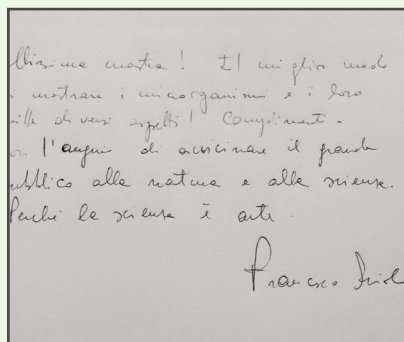 llissima mostra! Il miglior modo
i mostrare i microrganismi e i loro
mille diversi aspetti! Complimenti.
l'augurio di avvicinare il grande
ubblico alla natura e alla scienza.
Perché la scienza è arte.
Francesco